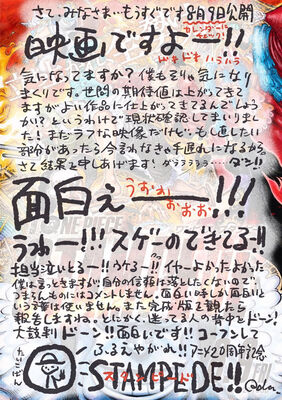 さて、みなさまーもうすぐです8月9日公開
カレンダーに
チェック!
映画ですよー!!
ドキドキハラハラ
気になってますか?僕もそりゃ気になり
まくりです。世間の期待値は上がってきて
ますがよい作品に仕上がってきてるんでしょう
か!?というわけで現状確認してまいりまし
た!まだラフな映像だけど。もし直したい
部分があったら今言わなきゃ手遅れになるから
さて結果を申しあげます!ダララララララ‥‥ダン!!
面白ぇー!!!
うおお
おおお!!
うわー!!!スゲーのできてる‥!!
担当泣いとるー!!ウケるー!!イヤーよかったよかった
僕は言っときますが自分の信頼は落としたくないので、
つまらんものにはコメントしません。面白い時しか面白いと
いう言葉は使いません。また完成版を観たら
報告しますね。とにかく迷ってる人の背中をドーン!
太鼓判ドーン!!面白いです!!コーフンして
たいこばん
ふるえやがれ!!アニメ20周年記念
STAMPEDE!!
スタンピード
Oda.